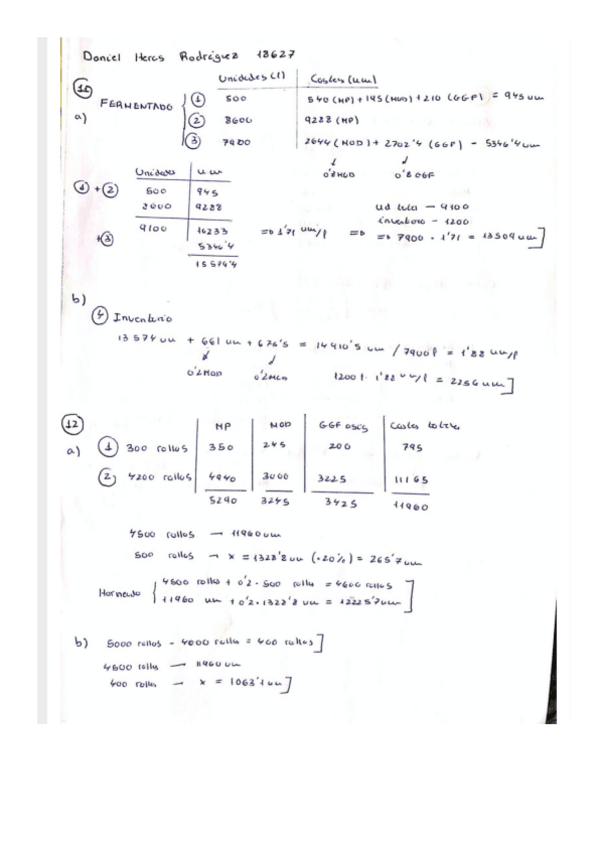 Daniel Heras Rodríguez 18627
Unidades (l) Costes (u.m)
16
FERMENTADO 1 500 540 (MP) + 195 (MOD) + 210 (GGF) = 945 um
a) 2 8600 9288 (MP)
3 7900 2644 (MOD) + 2702'4 (GGF) - 5346'4 um
0'8 MOD 0'8 GGF
Unidades u.m
1 + 2 500 945
8600 9288
9100 10233
+3 5346'4
15579'4
ud tota — 9100
inventario - 1200
=> 1'71 um/l => => 7900 · 1'71 = 13509 um]
b)
4 Inventario
13574 um + 661 um + 676'5 = 14910'5 um / 7900 l = 1'88 um/l
0'2 MOD
1200 l · 1'88 um/l = 2256 um]
12
MP MOD GGF Costes totales
a) 1 300 rollos 350 245 200 795
2 4200 rollos 4940 3000 3225 11165
5290 3245 3425 11960
4500 rollos — 11960 um
500 rollos → x = 1328'8 um (·20%) = 265'7 um
Horneado 4500 rollos + 0'2 · 500 rollos = 4600 rollos
11960 um + 0'2 · 1328'8 um = 12225'7 um]
b) 5000 rollos - 4000 rollos = 400 rollos]
4500 rollos — 11960 um
400 rollos → x = 1063'1 um]